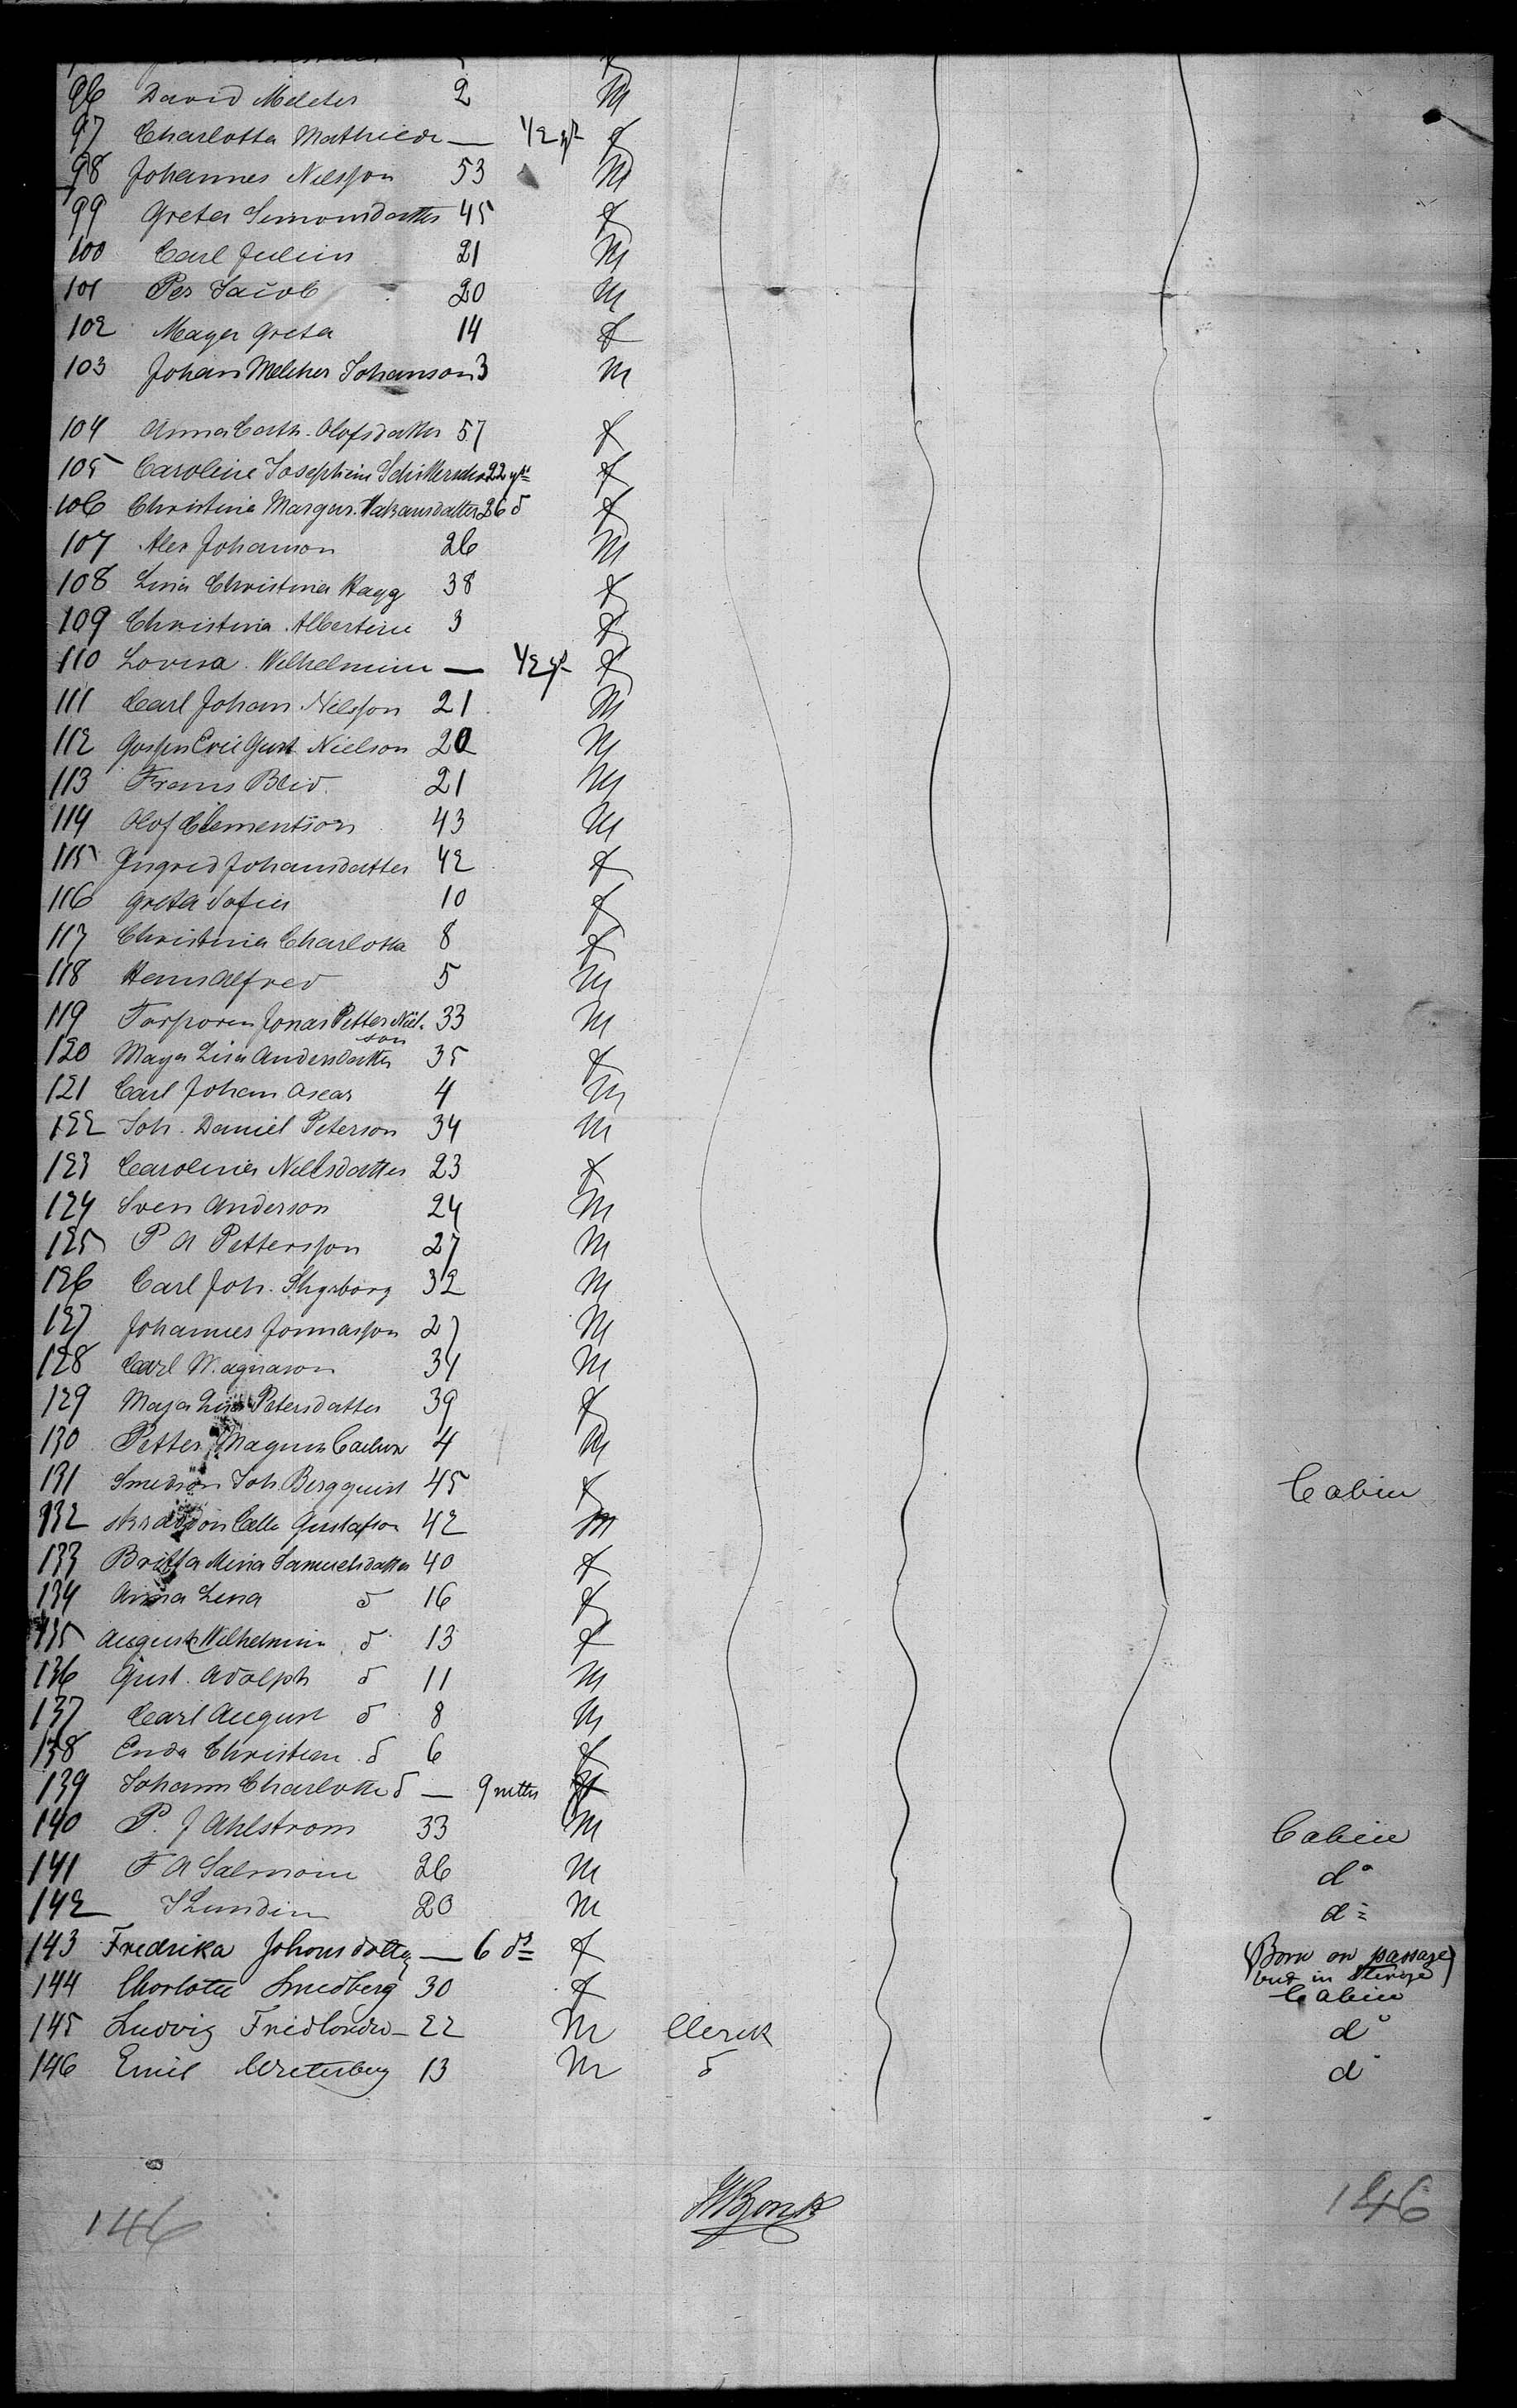 96 David Melcher 2 M
97 Charlotta Mathilda — 1/2 yr f
98 Johannes Nilsson 53 M
99 Greta Simonsdatter 45 f
100 Carl Julius 21 M
101 Per Jacob 20 M
102 Maya Greta 14 f
103 Johan Melcher Johanson 3 M
104 Anna Cath. Olofsdatter 57 f
105 Caroline Josephine 22 yrs f
106 Christina Margar. Hakansdatter 26 d f
107 Alex Johanson 26 M
108 Lina Christina Hagg 38 f
109 Christina Albertine 3 f
110 Lovisa Wilhelmina — 1/2 yr f
111 Carl Johan Nilsson 21 M
112 Eric Gust Nielson 20 M
113 Frans Blid 21 M
114 Olof Clementson 43 M
115 Ingrid Johansdatter 42 f
116 Greta Sofia 10 f
117 Christina Charlotta 8 f
118 Hans Alfred 5 M
119 Torparen Jonas Petter Niel- 33 M
son
120 Maya Lisa Andersdatter 35 f
121 Carl Johan Oscar 4 M
122 Joh. Daniel Peterson 34 M
123 Carolina Nilsdatter 23 f
124 Sven Anderson 24 M
125 P A Pettersson 27 M
126 Carl Joh. 32 M
127 Johannes Jonnasson 27 M
128 Carl Magnason 34 M
129 Maja Lisa Petersdatter 39 f
130 Petter Magnus Carlson 4 M
131 Smedson Joh Bergquist 45 f Cabin
132 Calle Gustafson 42 M
133 Britta Mina Samuelsdatter 40 f
134 Anna Lena d 16 f
135 Augusta Wilhelmina d 13 f
136 Gust. Adolph d 11 M
137 Carl August d 8 M
138 Enda Christian d 6 f
139 Johann Charlotte d — 9 mths f
140 P. J Ahlstrom 33 M Cabin
141 F A Salmoin 26 M do
142 J Lundin 20 M do
143 Fredrika Johonsdotter — 6 ds f (Born on passage
but in Sterage)
144 Charlotte Smedberg 30 f Cabin
145 Ludvig Fridlondre — 22 M Clerk do
146 Emil Wreterberg 13 M d do
146 146